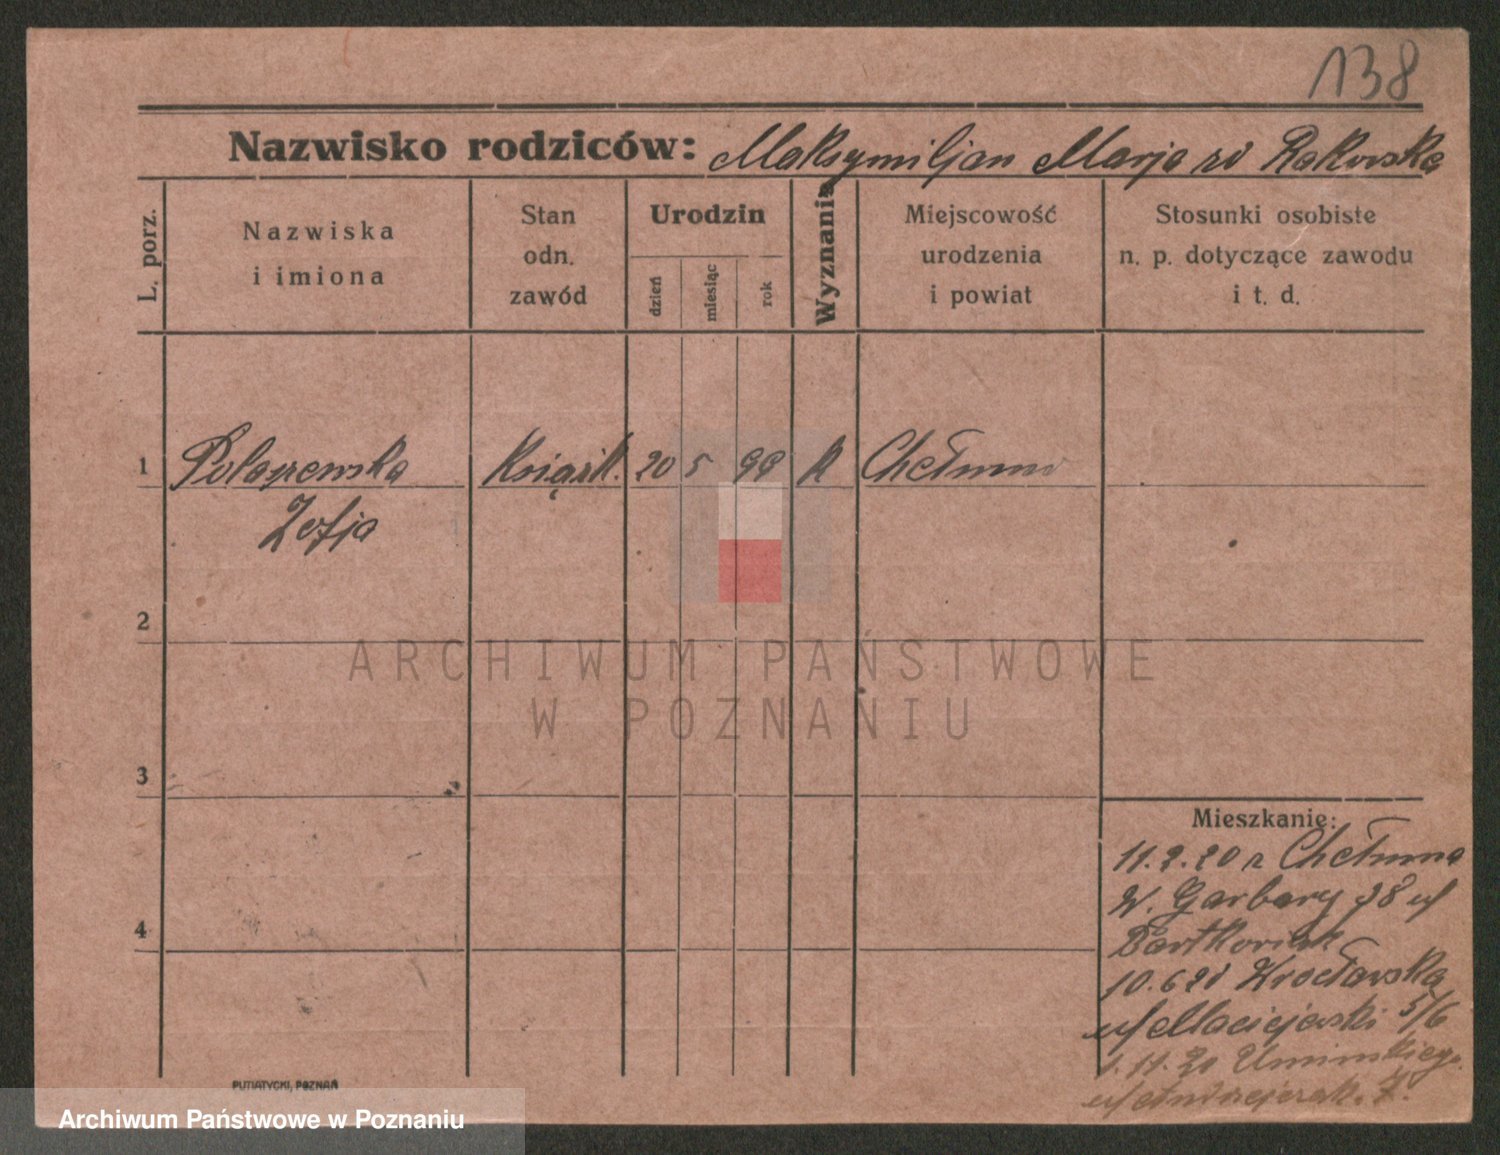 138
Nazwisko rodziców: Maksymiljan Marja Rakowska
L. porz.
Nazwiska
i imiona
Stan
odn.
zawód
Urodzin
dzień
miesiąc
rok
Wyznanie
Miejscowość
urodzenia
i powiat
Stosunki osobiste
n. p. dotyczące zawodu
i t. d.
1
Polaszewska Książk. 20 5 99 k Chełmno
Zofja
2
ARCHIWUM PAŃSTWOWE
W POZNANIU
3
Mieszkanie:
11.2.20 z Chełmna
W. Garbary 38 u/
4
Bartkowiak
10.6 20 Wrocławska
u/ Maciejewski 5/6
1.11.20 Umińskiego
u/ Andrzejczak. 7.
PUTIATYCKI, POZNAŃ
Archiwum Państwowe w Poznaniu